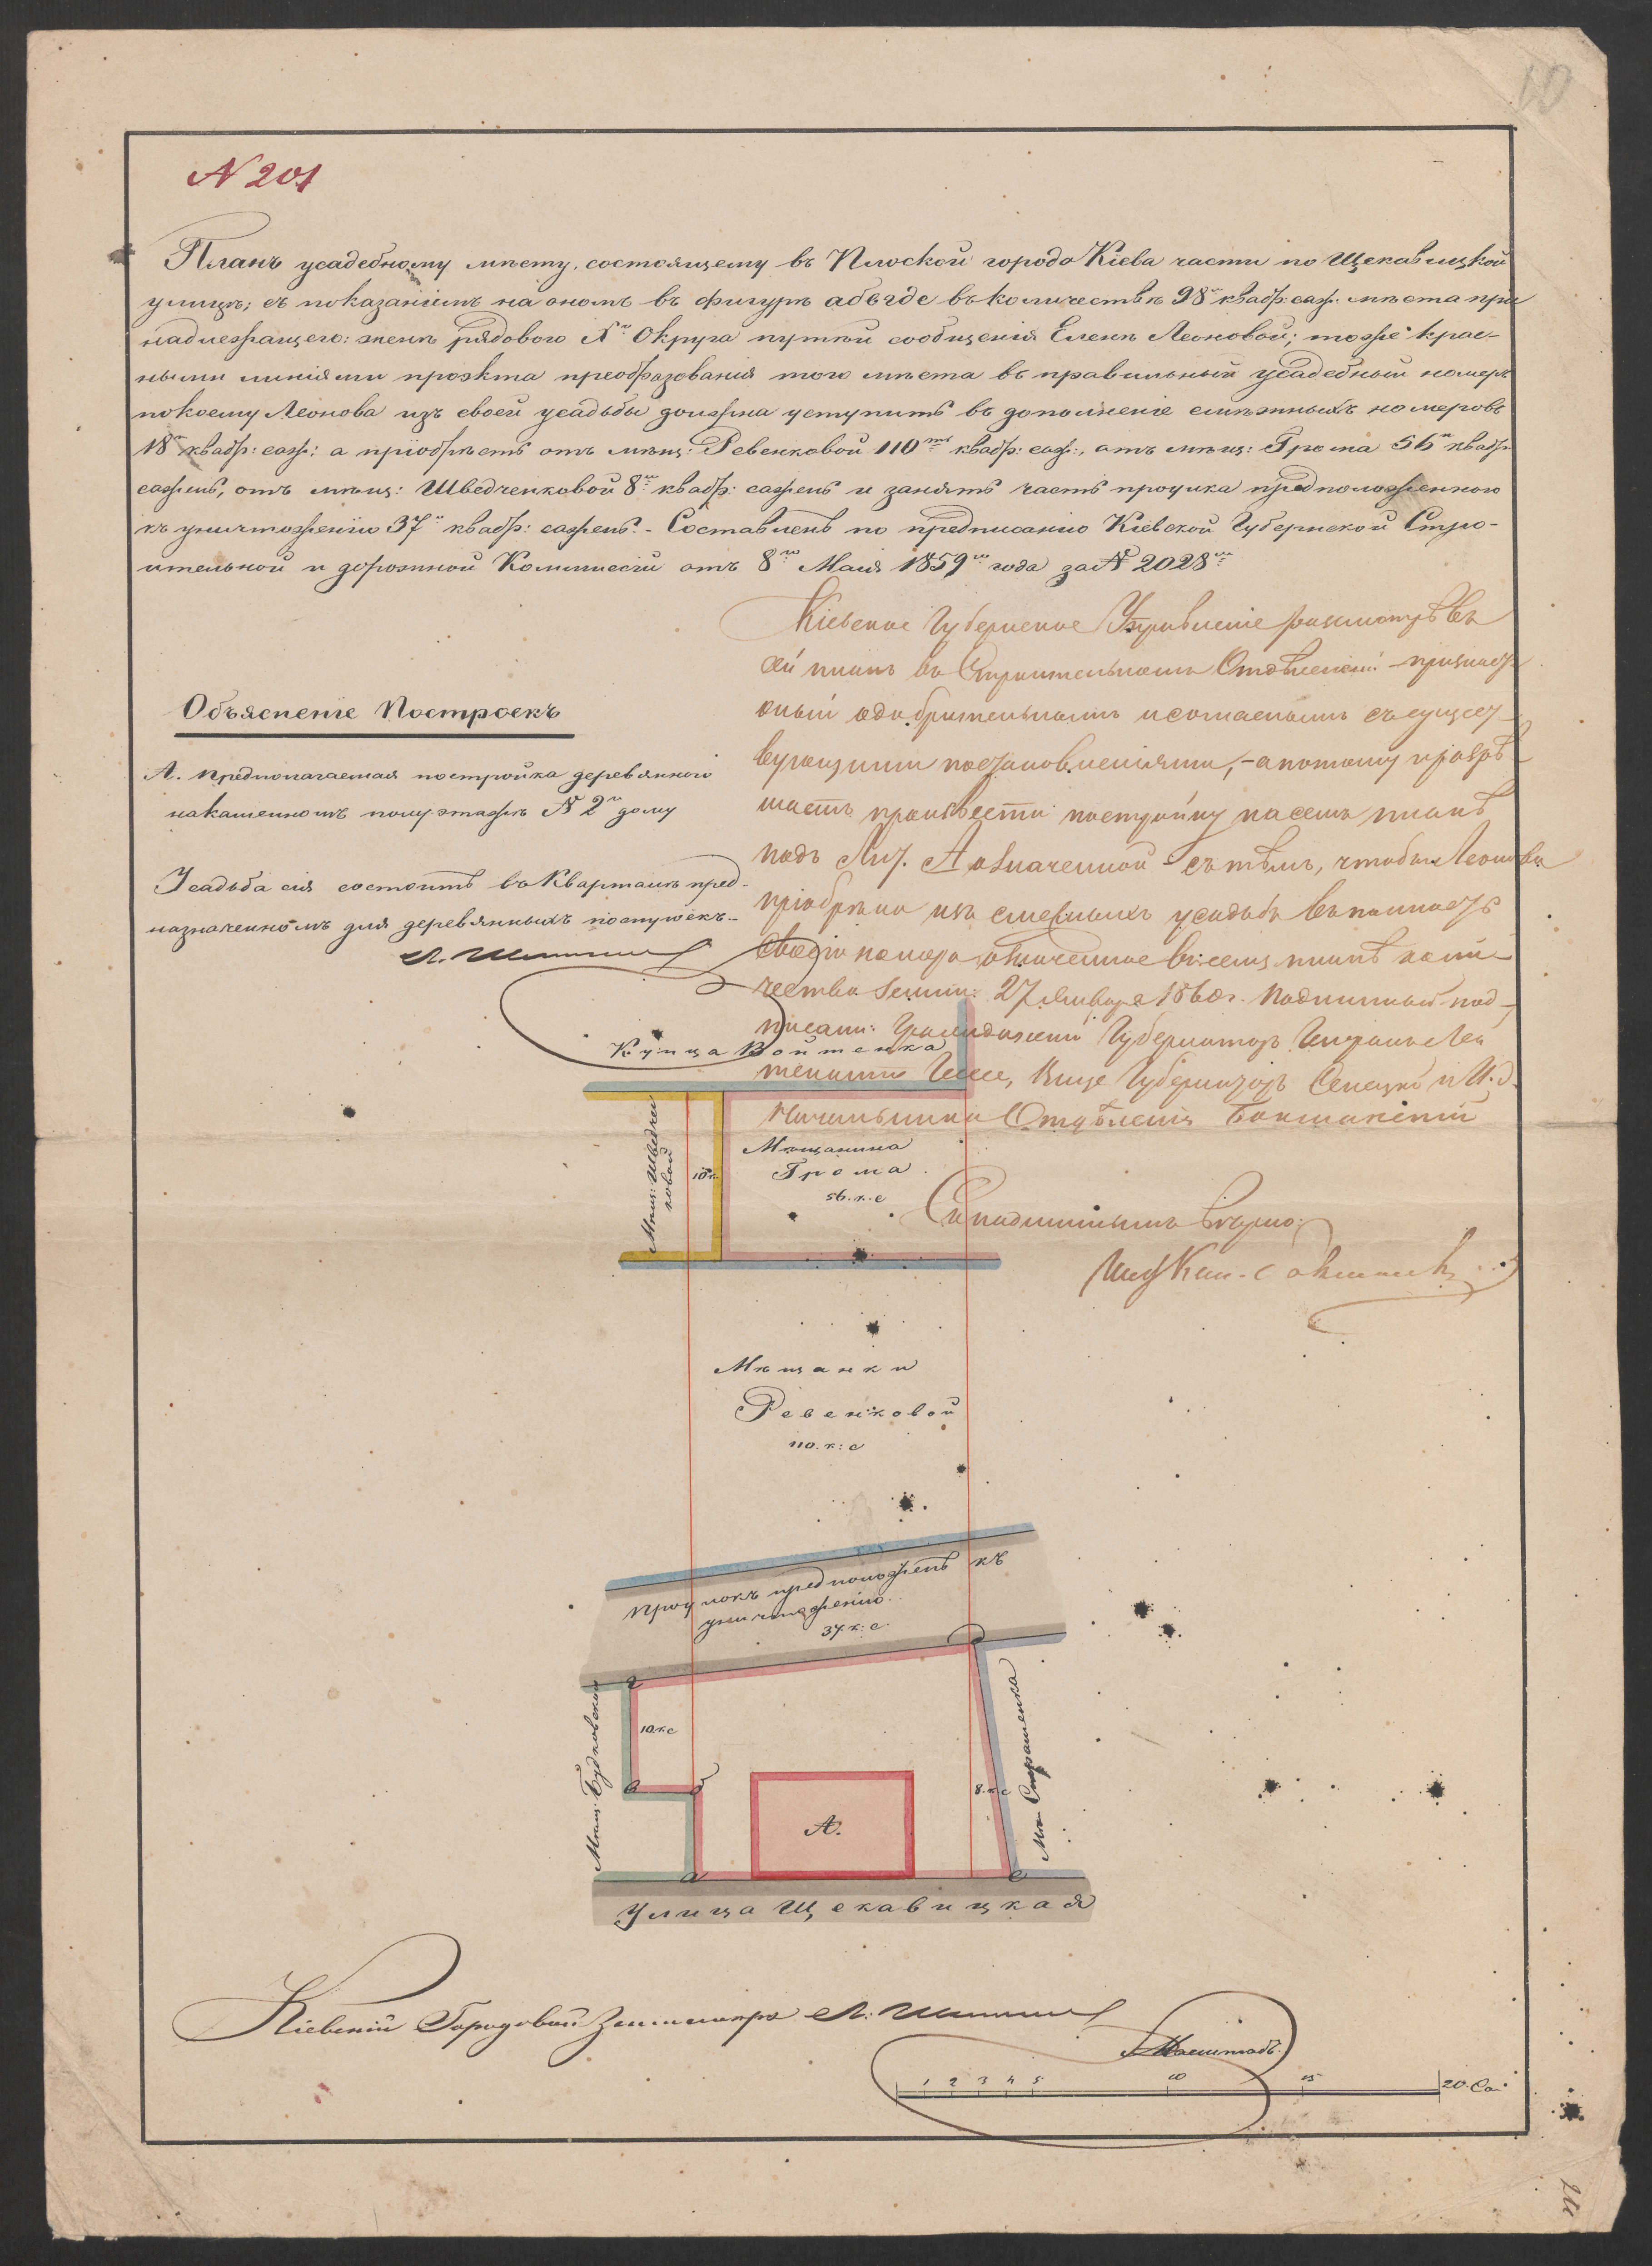 10
N 201
Планъ усадебному мѣсту, состоящему въ Плоской города Кіева части по Щекавицкой
улицѣ; съ показаніемъ на ономъ въ фигурѣ абвгде въ количествѣ 98 квадр: саж: мѣста при
надлежащего: женѣ рядового X Округа путей сообщенія Еленѣ Леоновой; тоже крас-
ными линіями проэкта преобразованія того мѣста въ правильный усадебный номеръ
по коему Леонова изъ своей усадьбы должна уступить въ дополненіе смѣжныхъ номеровъ
18 квадр: саж: а пріобрѣсть отъ мѣщ: Ревенковой 110 квадр: саж:, отъ мѣщ: Грома 56 квадр
сажень, отъ мѣщ: Шведченковой 8 квадр: сажень и занять часть проулка предположенного
къ уничтоженію 37 квадр: сажень. - Составленъ по предписанію Кіевской Губернской Стро-
ительной и дорожной Коммиссіи отъ 8го Маія 1859го года за N 2028
Кіевское Губернское Управленіе разсмотрѣвъ
сей планъ въ Строительномъ Отдѣленіи признаетъ
оный одобрительнымъ и согласнымъ съ сущест
вующими постановленіями, - а потому и разрѣ
шаетъ произвести постройку на семъ планѣ
подъ Лит. А означенной - съ тѣмъ, чтобы Леонова
пріобрѣла изъ смежныхъ усадьбъ въ полность
своего номера, означенное въ семъ планѣ коли
чество земли. 27 Января 1860 г. Подлинный под-
писали: Гражданскій Губернаторъ Генералъ Лей
тенантъ Гессе, Вице Губернаторъ Селецкій и И. д.
Начальника Отдѣленія
Съ подлиннымъ вѣрно:
Объясненіе Построекъ
А. Предполагаемая постройка деревянного
на каменномъ полуэтажѣ N 2 дому
Усадьба сія состоитъ въ Кварталѣ пред-
назначенномъ для деревянныхъ построекъ.-
Купца Войтенка
Мѣщ: Шведчен
ковой
10 к.
Мѣщанина
Грома
56. к. с
Мѣщанки
Ревенковой
110. к: с
Проулокъ предположенъ къ
уничтоженію.
37. к: с.
Мѣщ: Будковской
10. к. с
8. к. с
А.
Улица Щекавицкая
Кіевскій Городовой Землемѣръ
Масштабъ.
1 2 3 4 5 10 15 20. Са